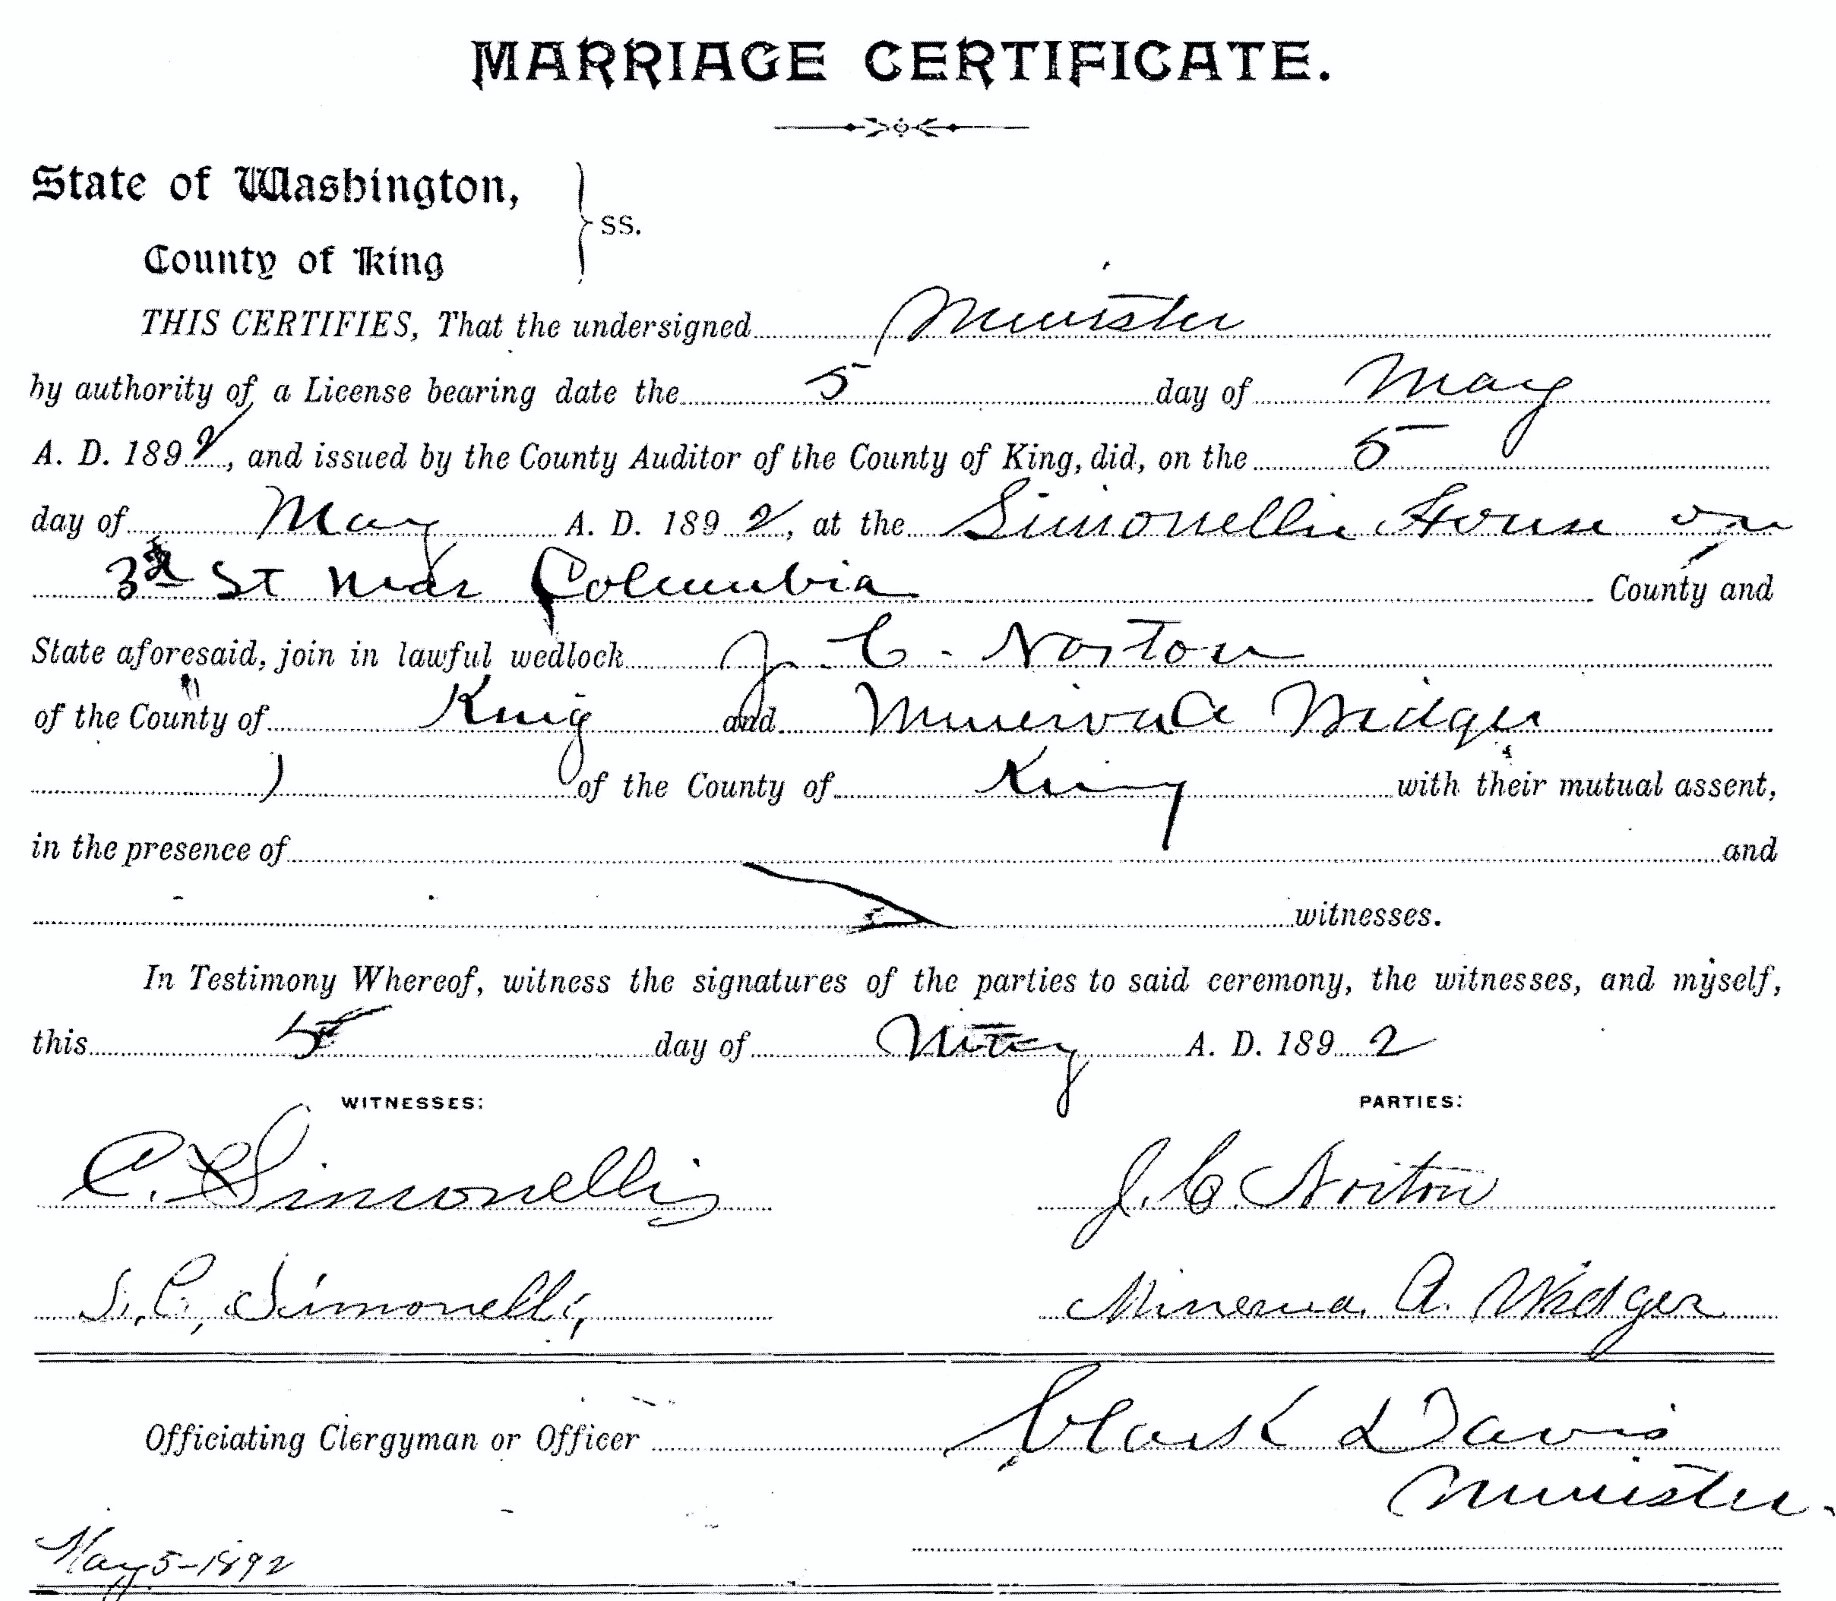 MARRIAGE CERTIFICATE.
State of Washington,
County of King
ss.
THIS CERTIFIES, That the undersigned Minister
by authority of a License bearing date the 5 day of May
A. D. 1892, and issued by the County Auditor of the County of King, did, on the 5
day of May A. D. 1892, at the Simonellie House on
3d St near Columbia County and
State aforesaid, join in lawful wedlock J. C. Norton
of the County of King and Minerva A Widger
of the County of King with their mutual assent,
in the presence of and
witnesses.
In Testimony Whereof, witness the signatures of the parties to said ceremony, the witnesses, and myself,
this 5 day of May A. D. 1892
WITNESSES: PARTIES:
C. Simonellis J. C. Norton
S. C, Simonelli, Minerva. A. Widger
Officiating Clergyman or Officer Clark Davis
Minister.
May 5-1892